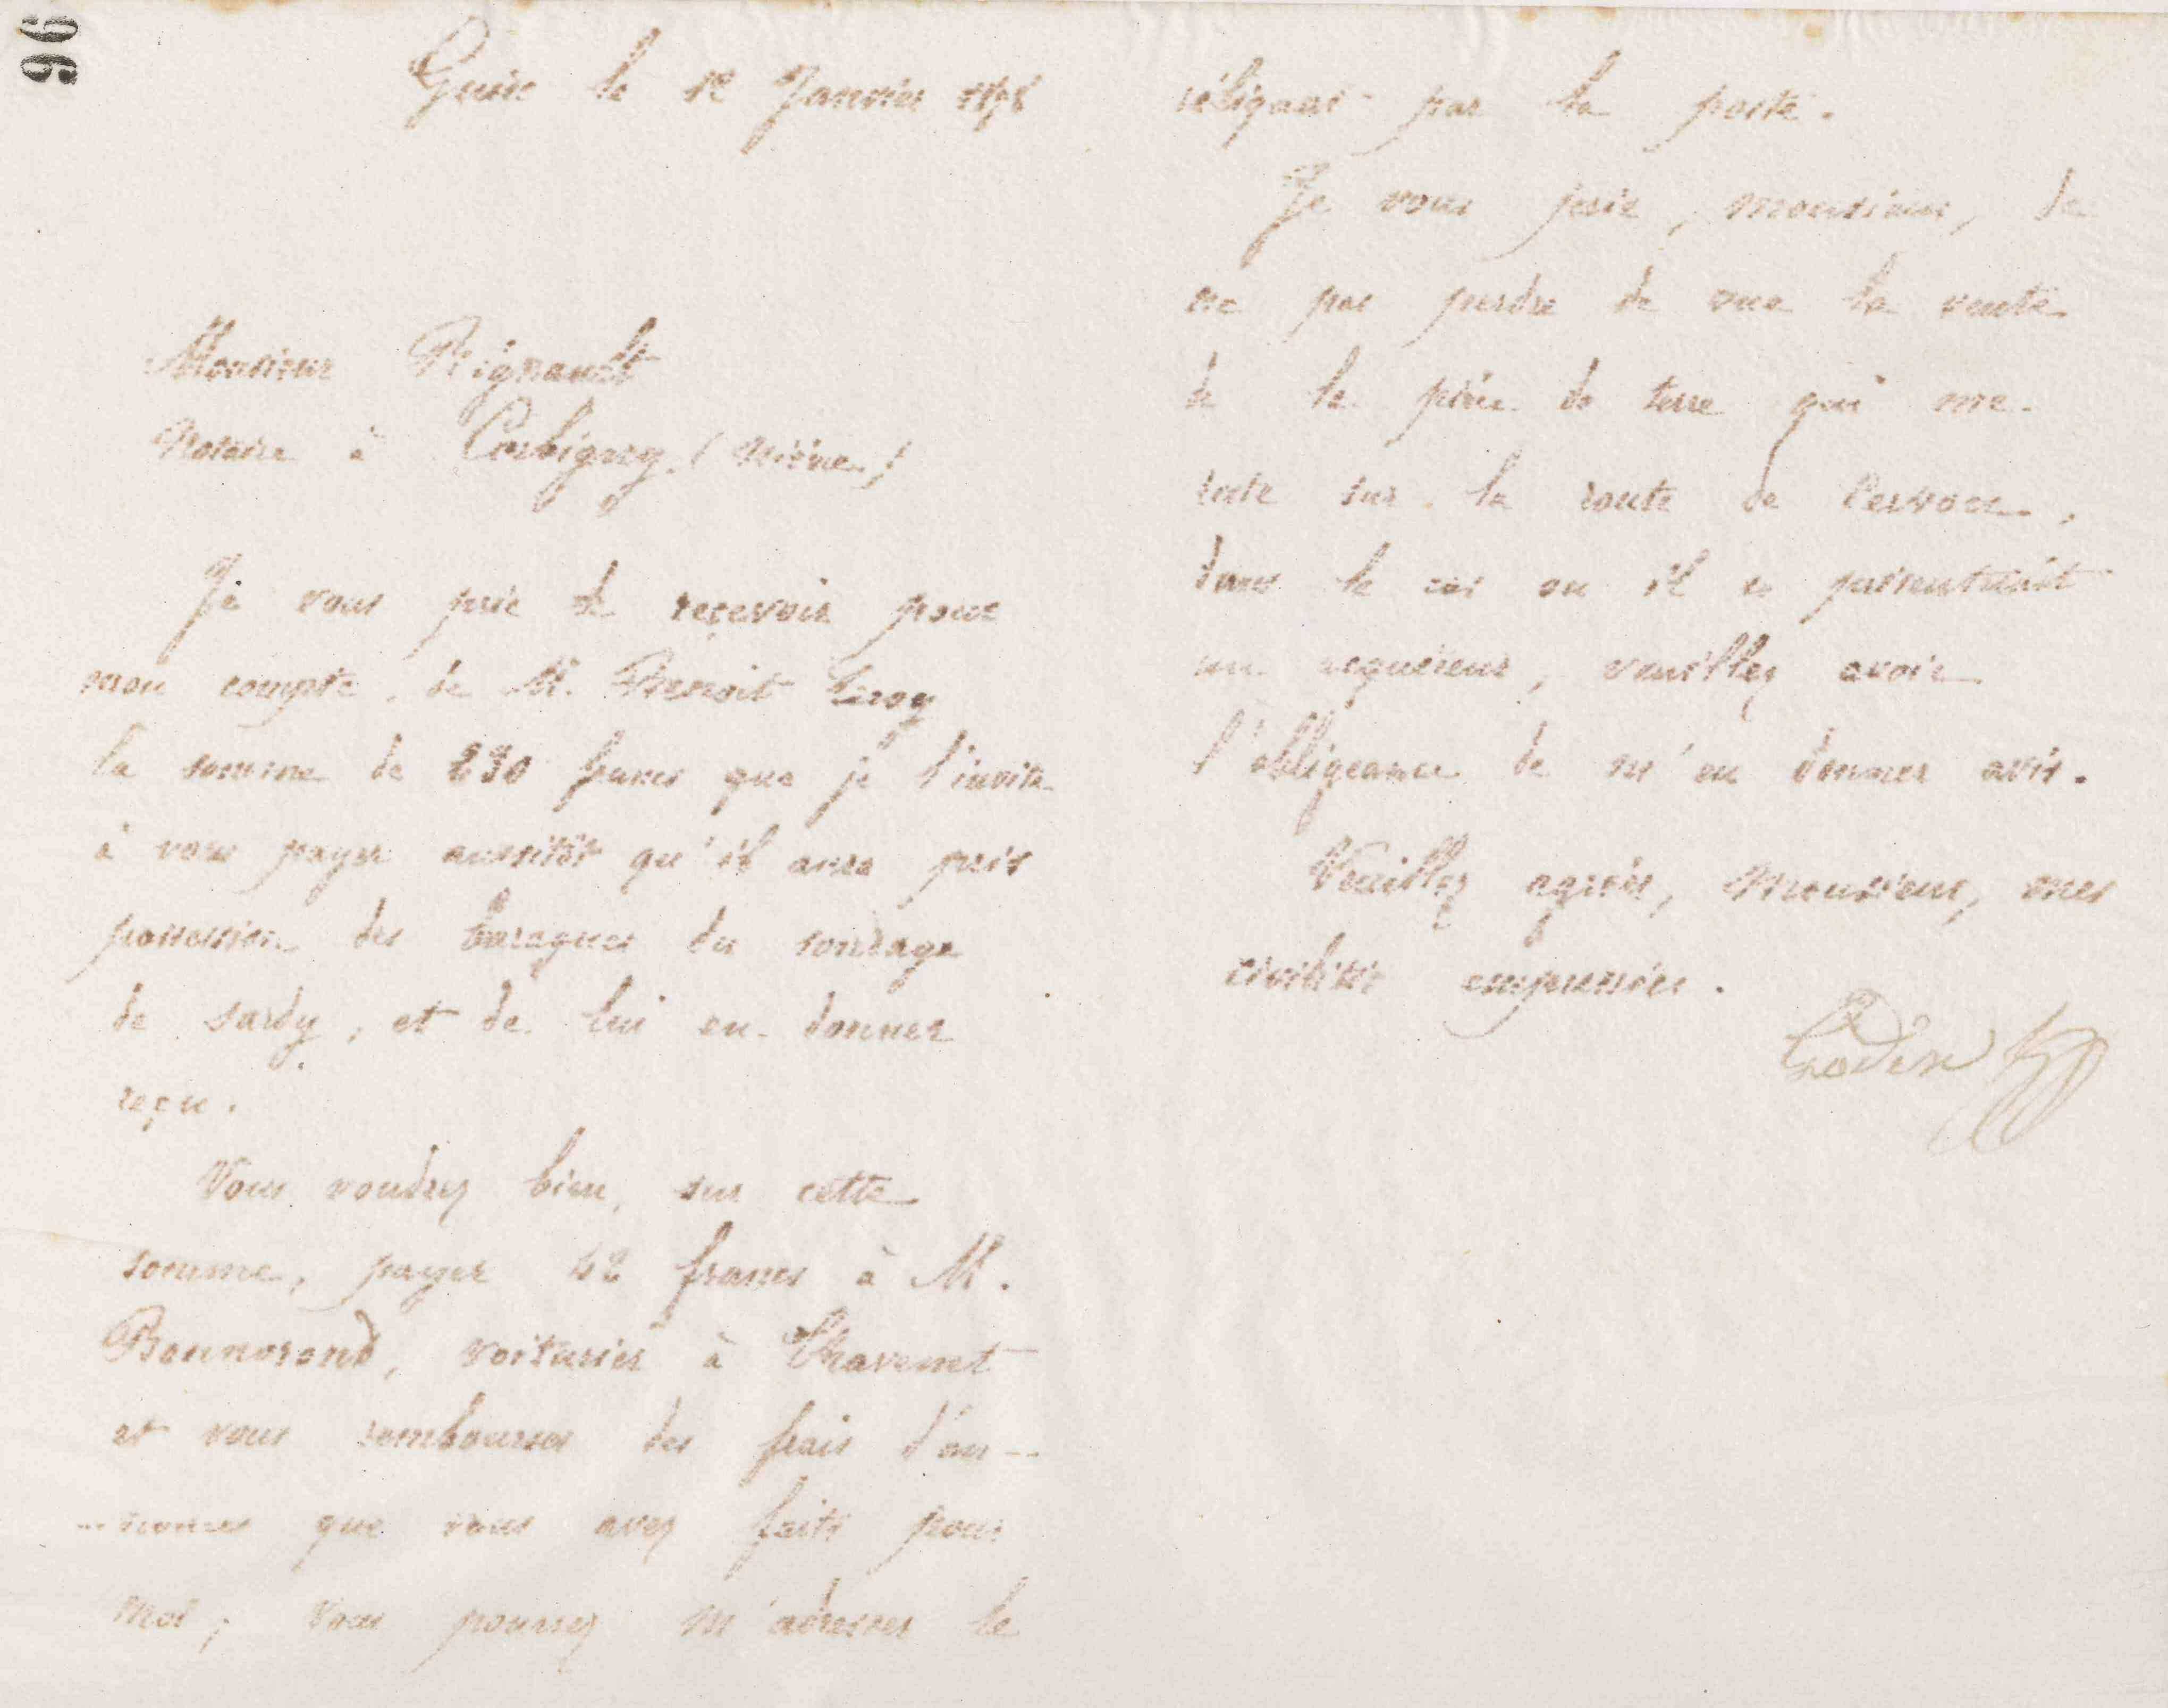 96
Guise le 12 Janvier 1878
Monsieur Rignault
Notaire à Corbigny (Nièvre)
Je vous prie de reçevoir pour
mon compte, de M. Benoit Leroy
la somme de 230 francs que je l'invite
à vous payer aussitôt qu'il aura pris
possession des baraques du sondage
de Sardy, et de lui en donner
reçu.
Vous voudrez bien, sur cette
somme, payer 42 francs à M.
Bonnorond, voiturier à Chavenet
et vous rembourser des frais d'an-
-nonces que vous avez faits pour
moi; vous pourrez m'adresser le
réliquat par la poste.
Je vous prie, monsieur, de
ne pas perdre de vue la vente
de la pièce de terre qui me
reste sur la route de
dans le cas ou il se présenterait
un acquéreur, veuillez avoir
l'obligeance de m'en donner avis.
Veuillez agréer, Monsieur, mes
civilités empressées.
Godin